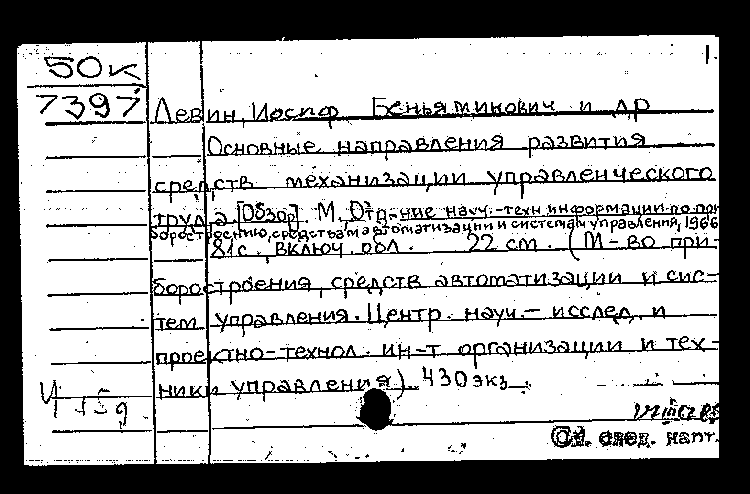 1.
50к
7397
Левин, Иосиф Беньяминович и др
Основные направления развития
средств механизации управленческого
труда [Обзор]. М, Отд-ние науч.-техн информации по при
боростроению, средствам автоматизации и системам управления, 1966
81с., включ. обл. 22 см. (М-во при-
боростроения, средств автоматизации и сис-
тем управления. Центр. науч.- исслед. и
проектно-технол. ин-т организации и тех-
ники управления) 430 экз.
См. след. карт.